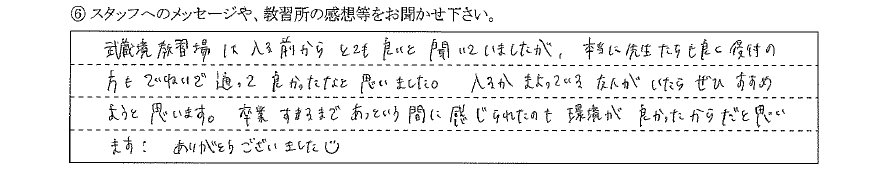 ⑥ スタッフへのメッセージや、教習所の感想等をお聞かせ下さい。
武蔵境教習場は入る前からとても良いと聞いていましたが、本当に先生たちも良く受付の
方もていねいで通って良かったなと思いました。 入るかまよっている友人がいたらぜひすすめ
ようと思います。 卒業するまであっという間に感じられたのも環境が良かったからだと思い
ます! ありがとうございました☺